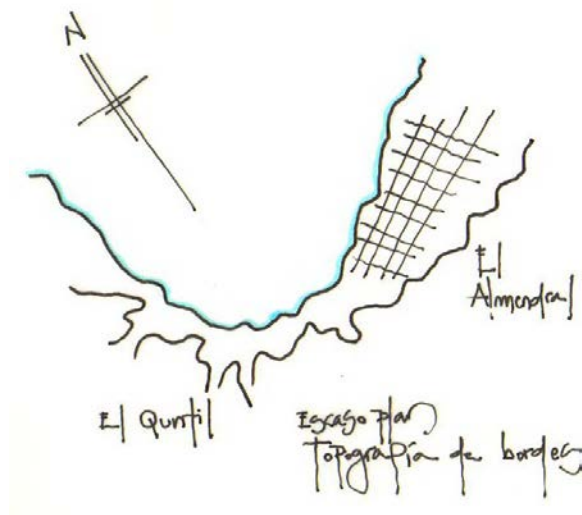 N
El
Almendral
El Quintil
Escaso plan
Topografía de bordes